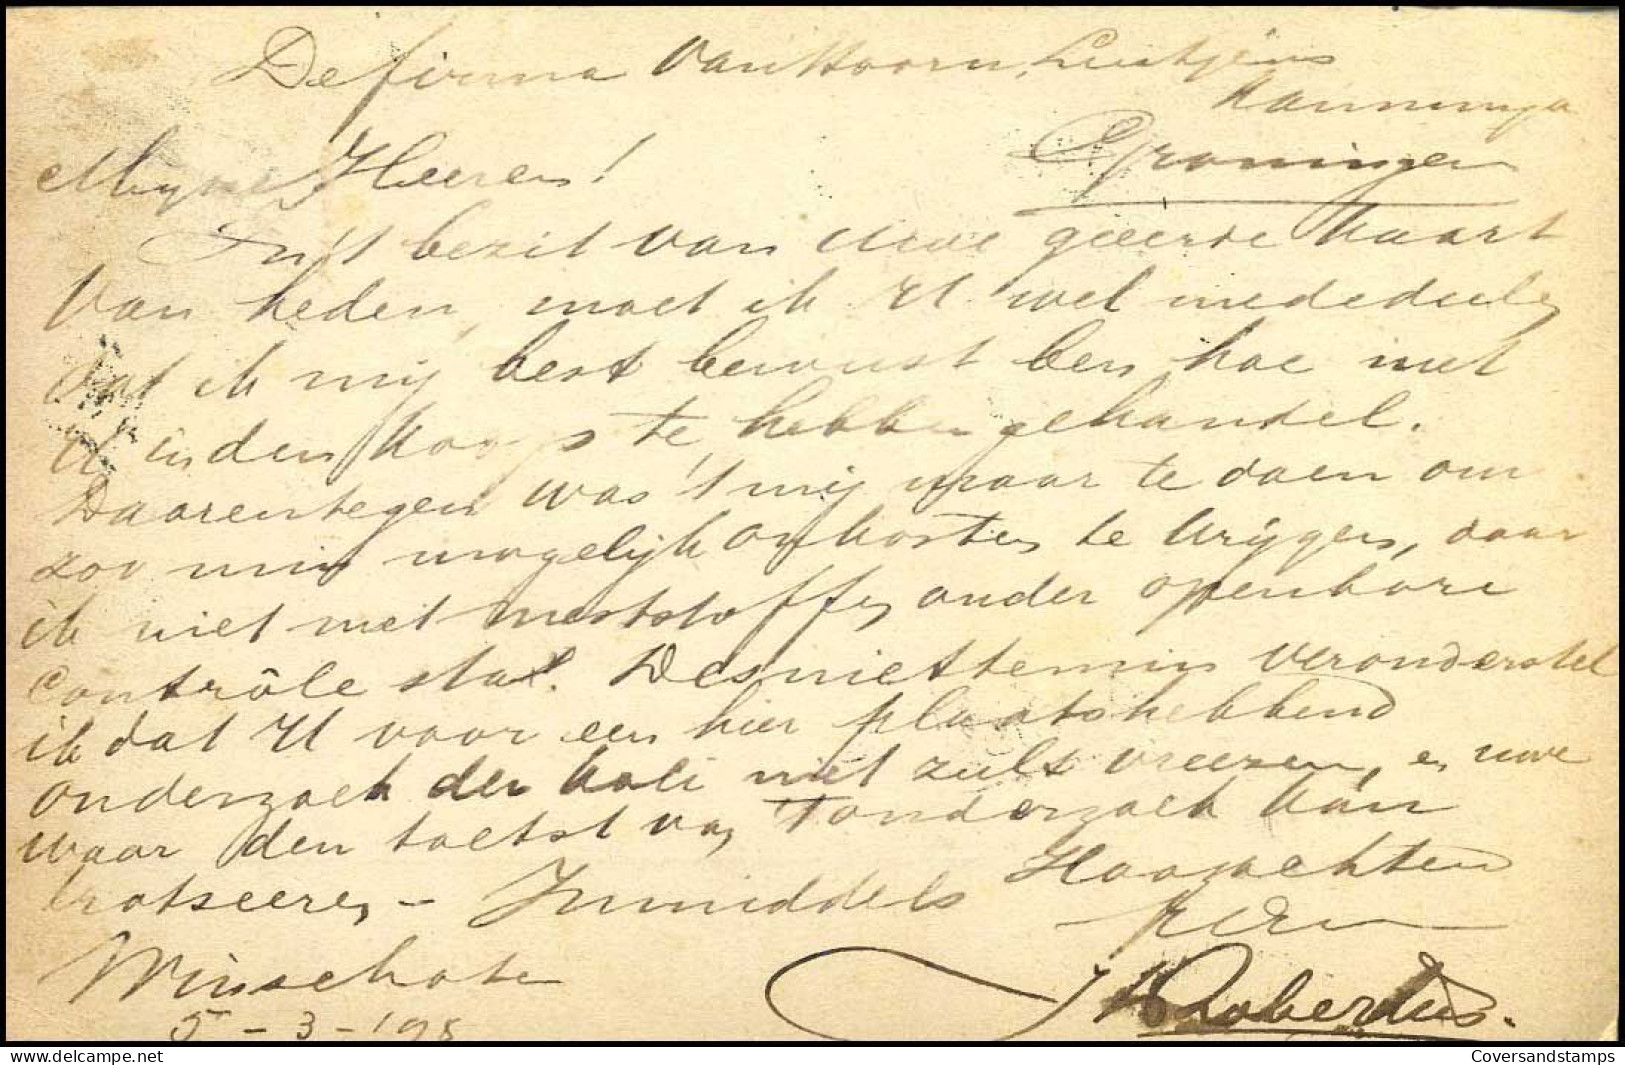 De firma Van Hoorn, Luitjens
Kanninga
Groningen
Myne Heeren!
In 't bezit van uwe geeerde kaart
van heden, moet ik U wel mededeelen
dat ik mij best bewust ben hoe met
U in den koop te hebben gehandel.
Daarentegen was 't mij maar te doen om
zoo min mogelijk onkosten te krijgen, daar
ik niet met meststoffen onder openbare
Contrôle sta. Desniettemin veronderstel
ik dat U voor een hier plaatshebbend
onderzoek der kali niet zult vreezen, en uwe
waar den toetst van 't onderzoek kan
trotseeren, - Inmiddels Hoogachtend
Winschoten
5-3-'98
J K Robertus.
Coversandstamps